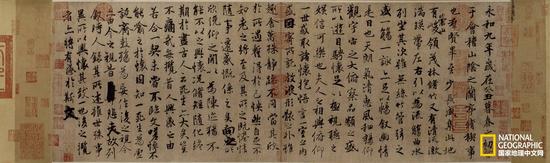 永和九年歲在癸丑暮春之初會
于會稽山陰之蘭亭脩稧事
也羣賢畢至少長咸集此地
有崇山峻領茂林脩竹又有清流激
湍暎帶左右引以為流觴曲水
列坐其次雖無絲竹管弦之
盛一觴一詠亦足以暢敘幽情
是日也天朗氣清惠風和暢仰
觀宇宙之大俯察品類之盛
所以遊目騁懷足以極視聽之
娛信可樂也夫人之相與俯仰
一世或取諸懷抱悟言一室之內
或因寄所託放浪形骸之外雖
趣舍萬殊靜躁不同當其欣
於所遇蹔得於己怏然自足不
知老之將至及其所之既惓情
隨事遷感慨係之矣向之所
欣俛仰之閒以為陳迹猶不
能不以之興懷況脩短隨化終
期於盡古人云死生亦大矣豈
不痛哉每攬昔人興感之由
若合一契未嘗不臨文嗟悼不
能喻之於懷固知一死生為虛
誕齊彭殤為妄作後之視今
亦由今之視昔悲夫故列
敘時人錄其所述雖世殊事
異所以興懷其致一也後之攬
者亦將有感於斯文
NATIONAL
GEOGRAPHIC
国家地理中文网